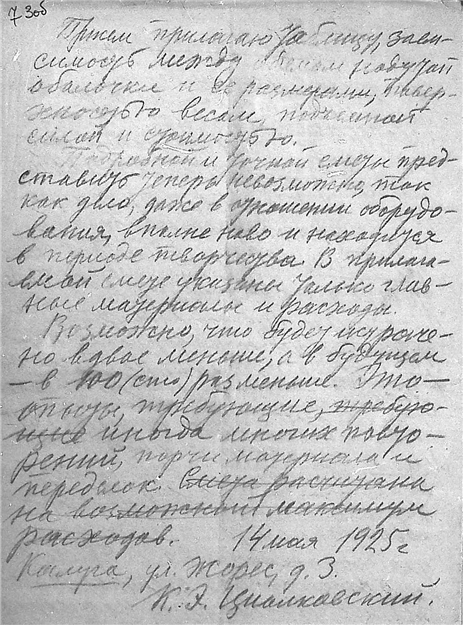 7 Зоб
При сем прилагаю таблицу, зави-
симость между объемом надутой
оболочки и ее размерами, повер-
хностью весом, подъемной
силой и стоимостью.
Подробной и точной сметы пред-
ставить теперь невозможно, так
как дело, даже в отношении оборудо-
вания, вполне ново и находится
в периоде творчества. В прилага-
емой смете указаны только глав-
ные материалы и расходы.
Возможно, что будет истраче-
но вдвое меньше, а в будущем
– в 100 (сто) раз меньше. Это –
опыты, требующие, требую-
щие иногда многих повто-
рений, порчи материала и
переделок. Смета рассчитана
на возможной максимум
расходов. 14 мая 1925 г
Калуга, ул. Жорес, д. 3.
К. Э. Циолковский.